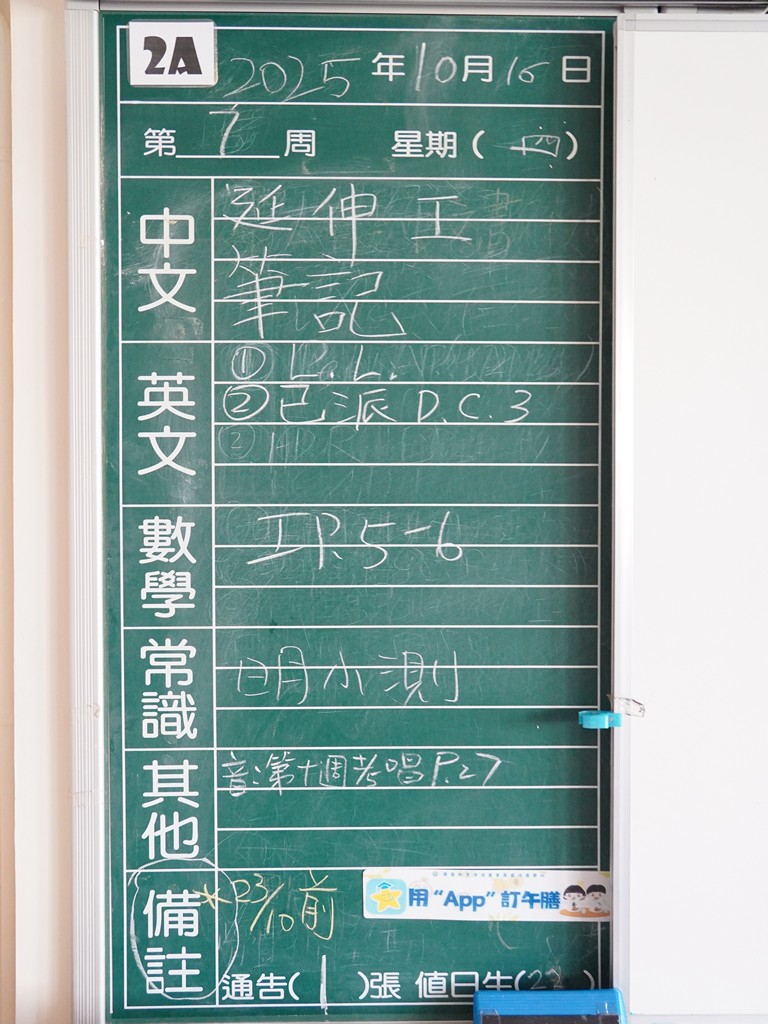 2A
2025年10月16日
第7周 星期(四)
中文
延伸工
筆記
英文
① L.L.
② 已派 D.C.3
③
數學
工P.5-6
常識
明小測
其他
音:第十週考唱P.27
備註
*23/10前
用“App”訂午膳
通告(1)張 值日生(22)